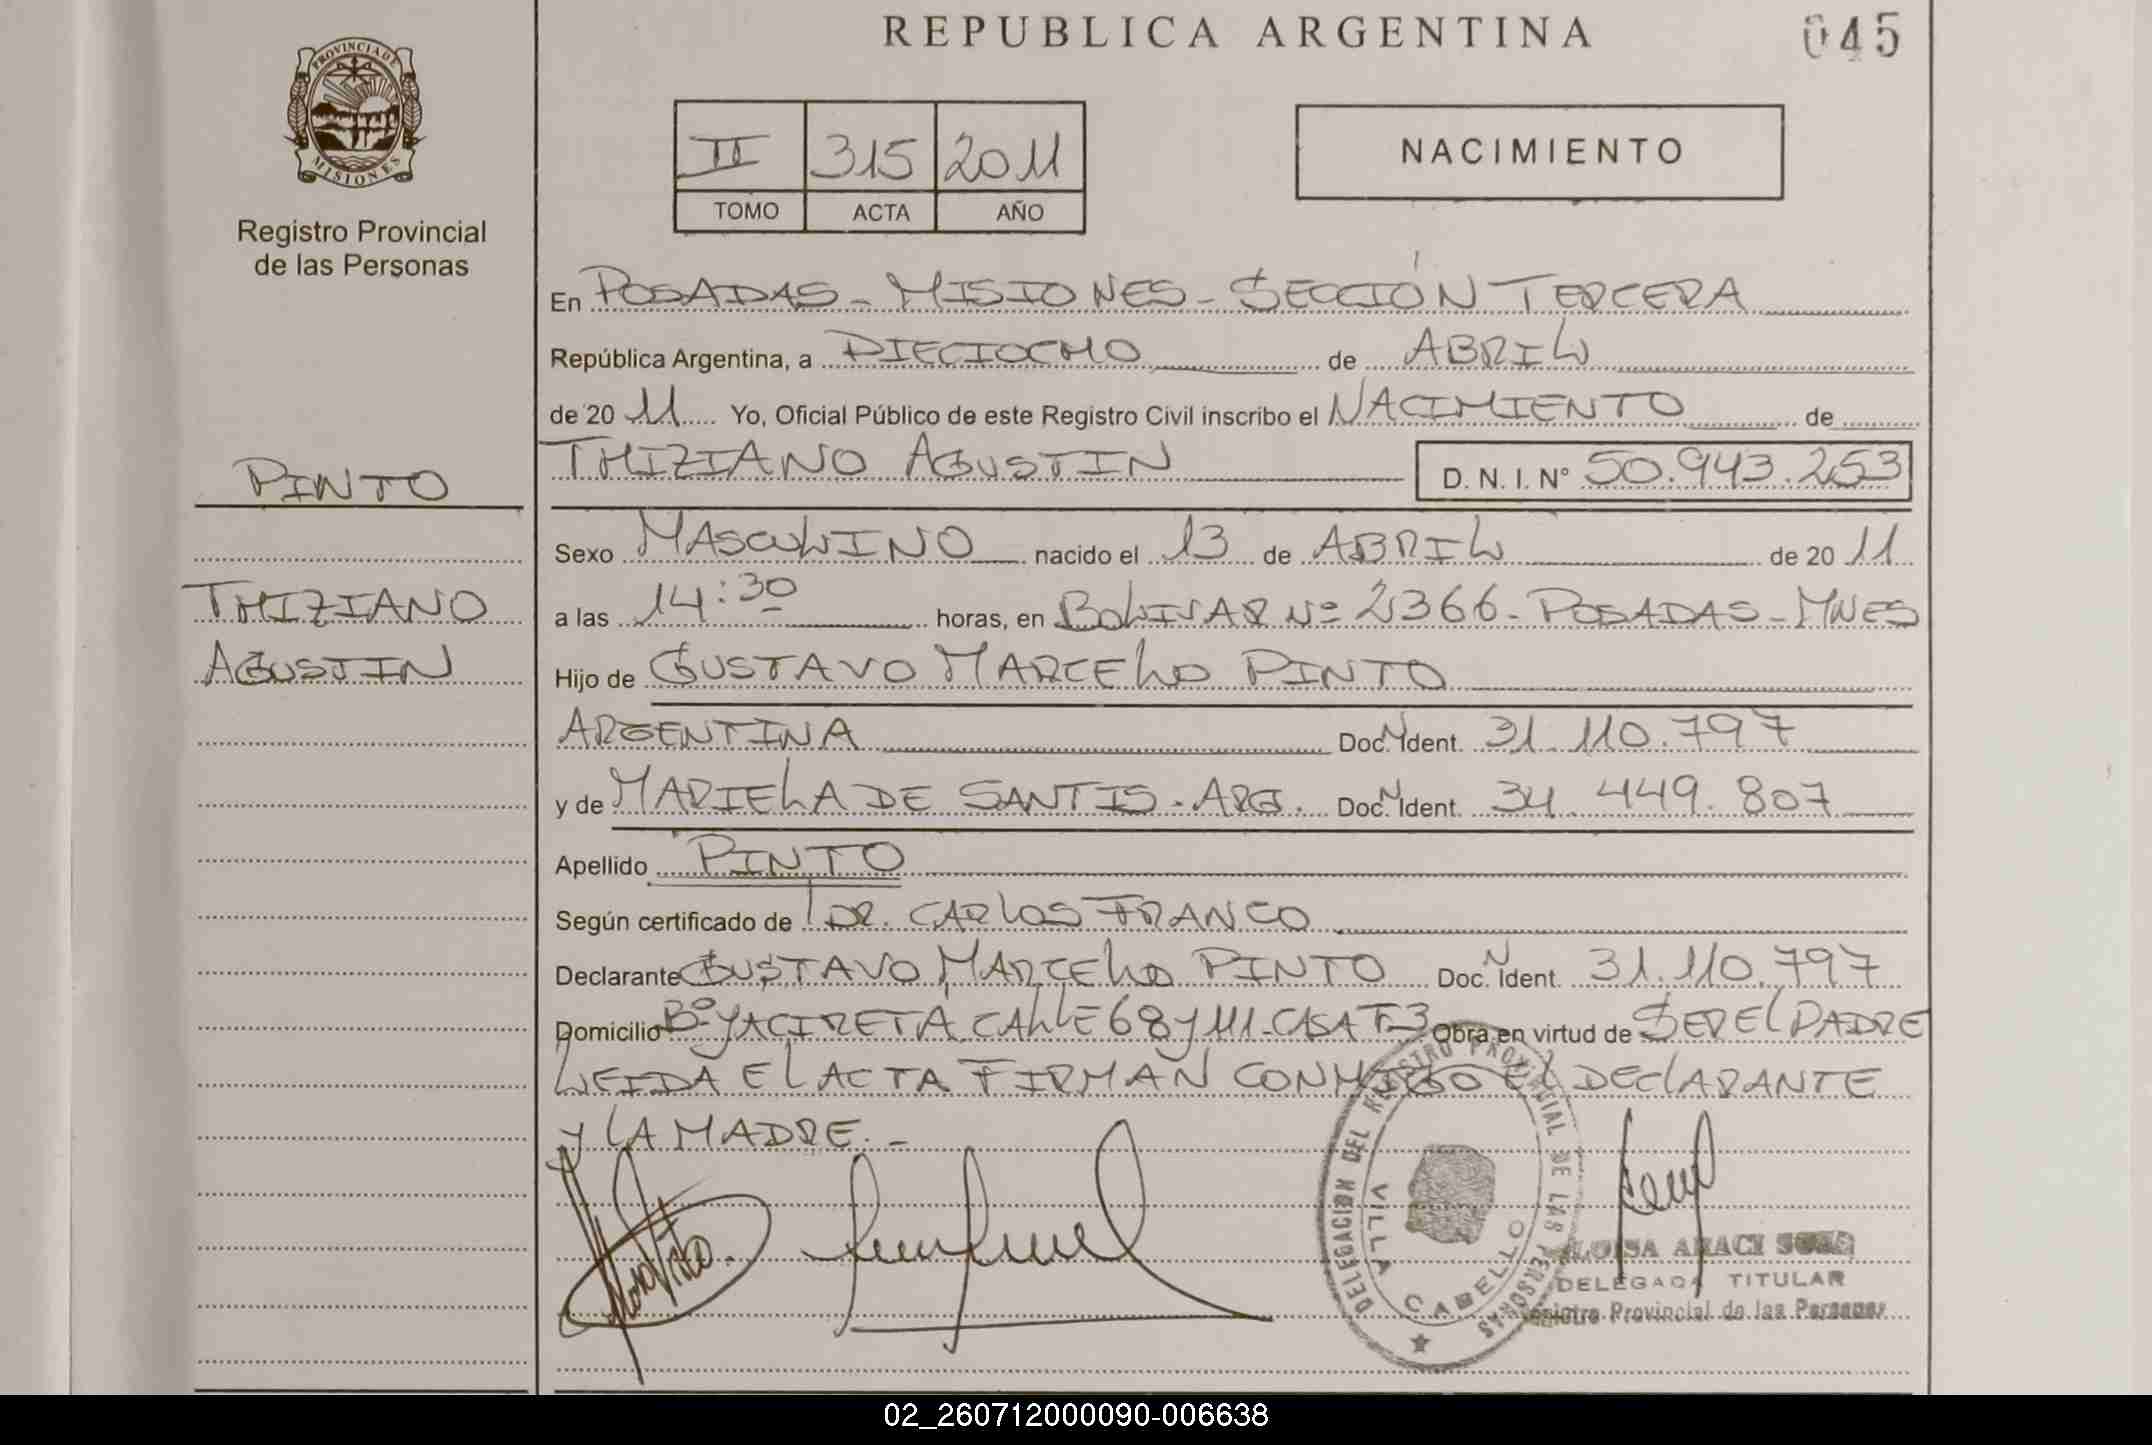 REPUBLICA ARGENTINA
045
PROVINCIA DE MISIONES
Registro Provincial
de las Personas
II 315 2011
TOMO ACTA AÑO
NACIMIENTO
En POSADAS - MISIONES - SECCIÓN TERCERA
República Argentina, a DIECIOCHO de ABRIL
de 2011 Yo, Oficial Público de este Registro Civil inscribo el NACIMIENTO de
THIZIANO AGUSTIN D. N. I. N° 50.943.253
PINTO
THIZIANO
AGUSTIN
Sexo MASCULINO nacido el 13 de ABRIL de 2011
a las 14:30 horas, en BOLIVAR Nº 2366 - POSADAS - MNES
Hijo de GUSTAVO MARCELO PINTO
ARGENTINA Doc. N Ident. 31.110.797
y de MARIELA DE SANTIS - ARG. Doc. N Ident. 34.449.807
Apellido PINTO
Según certificado de DR. CARLOS FRANCO
Declarante GUSTAVO MARCELO PINTO Doc. N Ident. 31.110.797
Domicilio Bº YACIRETÁ CALLE 68 y 111 - CASA F-3 Obra en virtud de SER EL PADRE
LEIDA EL ACTA FIRMAN CONMIGO EL DECLARANTE
Y LA MADRE. -
DELEGACION DEL REGISTRO PROVINCIAL DE LAS PERSONAS
VILLA CABELLO
ARACI
DELEGADA TITULAR
Registro Provincial de las Personas
02_260712000090-006638